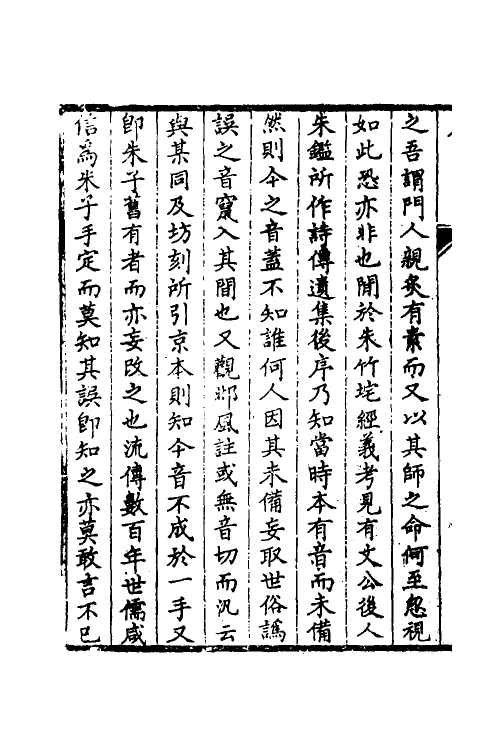 之吾謂門人親炙有素而又以其師之命何至忽視
如此恐亦非也閒於朱竹垞經義考見有文公後人
朱鑑所作詩傳遺集後序乃知當時本有音而未備
然則今之音蓋不知誰何人因其未備妄取世俗譌
誤之音竄入其間也又觀邶風註或無音切而汎云
與某同及坊刻所引京本則知今音不成於一手又
卽朱子舊有者而亦妄改之也流傳數百年世儒咸
信爲朱子手定而莫知其誤卽知之亦莫敢言不已